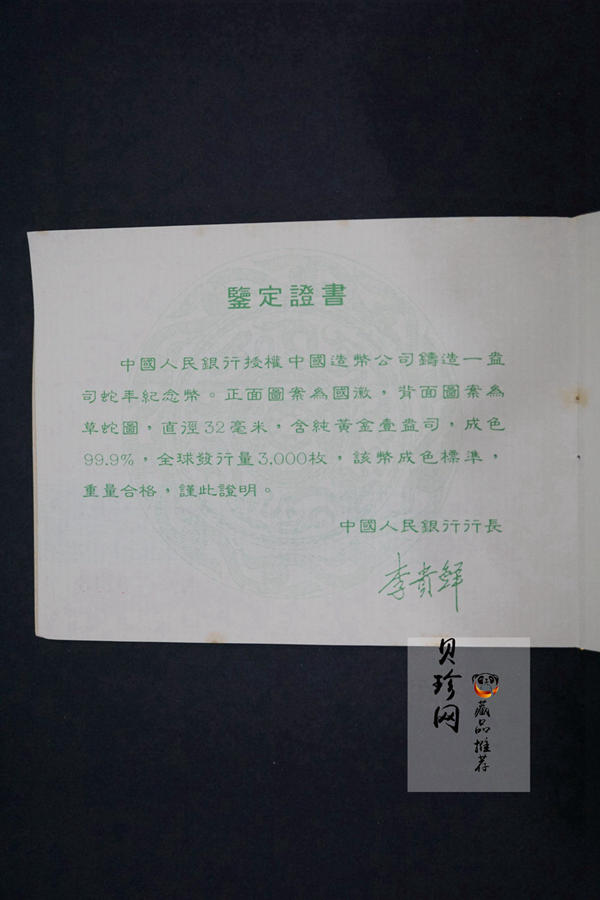 鑒定證書
中國人民銀行授權中國造幣公司鑄造一盎
司蛇年紀念幣。正面圖案為國徽，背面圖案為
草蛇圖，直徑32毫米，含純黃金壹盎司，成色
99.9%，全球發行量3.000枚，該幣成色標準，
重量合格，謹此證明。
中國人民銀行行長
李貴鮮
贝珍网
藏品推荐